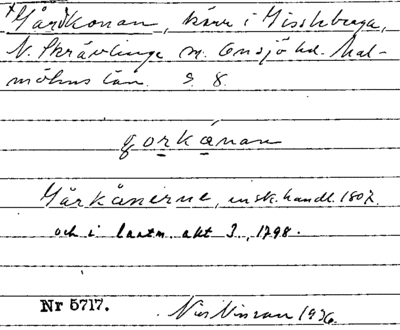 ×Gårdkonan, kärr i Missleberga,
N. Skrävlinge sn. Onsjö hd. Mal-
möhus län. S. 8.
gorkånan
Gårkånerne, ensk. handl. 1807.
och i lantm. akt 3, 1798.
Nr 5717. Nils Nilsson 1936.